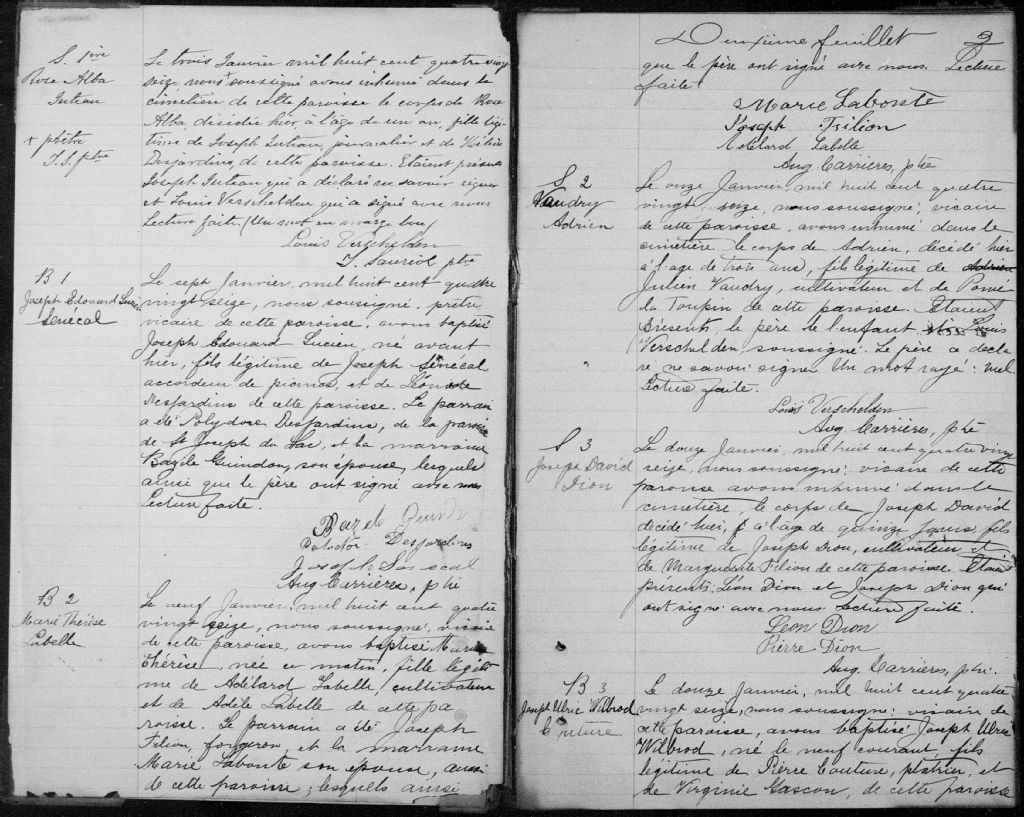 S. 1ère
Rose Alba
Juteau
+ prêtre
J. S. ptre
Le trois Janvier mil huit cent quatre vingt
seize, nous + soussigné avons inhumé dans le
cimetière de cette paroisse le corps de Rose
Alba, décédée hier à l'âge de un an, fille légi-
time de Joseph Juteau, journalier et de
Desjardins, de cette paroisse. Etaient présents
Joseph Juteau qui a déclaré ne savoir signer
et Louis Verschelden qui a signé avec nous
Lecture faite. (Un mot en marge bon)
Louis Verschelden
J. Sauriol ptre
B 1
Joseph Edouard Lucien
Senécal
Le sept Janvier, mil huit cent quatre
vingt seize, nous soussigné, prêtre
vicaire de cette paroisse, avons baptisé
Joseph Edouard Lucien, né avant
hier, fils légitime de Joseph Senécal
accordeur de pianos, et de Léonade
Desjardins de cette paroisse. Le parrain
a été Polydore Desjardins, de la paroisse
de St Joseph du Lac, et la marraine
Bazile Guindon, son épouse, lesquels
ainsi que le père ont signé avec nous
Lecture faite.
Desjardins
Joseph Sénécal
Aug Carrières, ptre
B 2
Marie Thérèse
Labelle
Le neuf Janvier, mil huit cent quatre
vingt seize, nous soussigné, vicaire
de cette paroisse, avons baptisé Marie
Thérèse, née ce matin, fille légiti
me de Adélard Labelle, cultivateur
et de Adèle Labelle de cette pa
roisse. Le parrain a été Joseph
Filion, forgeron, et la marraine
Marie Labonté son épouse, aussi
de cette paroisse, lesquels ainsi
Deuxième feuillet 2
que le père ont signé avec nous. Lecture
faite.
Marie Labonte
Joseph Filion
Adélard Labelle
Aug Carrières, ptre
S 2
Vaudry
Adrien
Le onze Janvier, mil huit cent quatre
vingt seize, nous soussigné, vicaire
de cette paroisse, avons inhumé dans le
cimetière le corps de Adrien, décédé hier
à l'age de trois ans, fils légitime de Adrien
Julien Vaudry, cultivateur et de
La Toupin de cette paroisse. Etaient
présents, le père de l'enfant Louis
Verschelden, soussigné. Le père a décla
ré ne savoir signer. Un mot rayé: nul
Lecture faite.
Louis Verschelden
Aug Carrières, ptre
S 3
Joseph David
Dion
Le douze Janvier, mil huit cent quatre vingt
seize, nous soussigné, vicaire de cette
paroisse avons inhumé dans le
cimetière, le corps de Joseph David
décédé hier, à l'age de quinze jours, fils
légitime de Joseph Dion, cultivateur et
de Marguerite Filion de cette paroisse. Etaient
présents: Léon Dion et Joseph Dion qui
ont signé avec nous. Lecture faite.
Leon Dion
Pierre Dion
Aug. Carrières, ptre.
B 3
Joseph Ulric Wilbrod
Couture
Le douze Janvier, mil huit cent quatre
vingt seize, nous soussigné, vicaire de
cette paroisse, avons baptisé Joseph Ulric
Wilbrod, né le neuf courant, fils
légitime de Pierre Couture, platrier, et
de Virginie Gascon, de cette paroisse